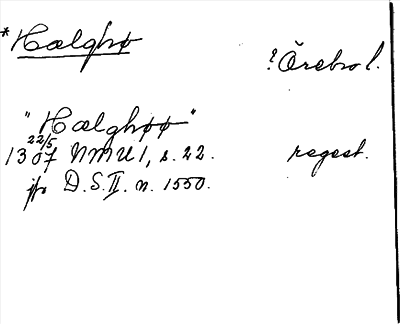 *Hælghø
? Örebro l.
"Hælghøø"
22/5
1307 NMU 1, s. 22. regest.
jfr D.S. II. n. 1550.